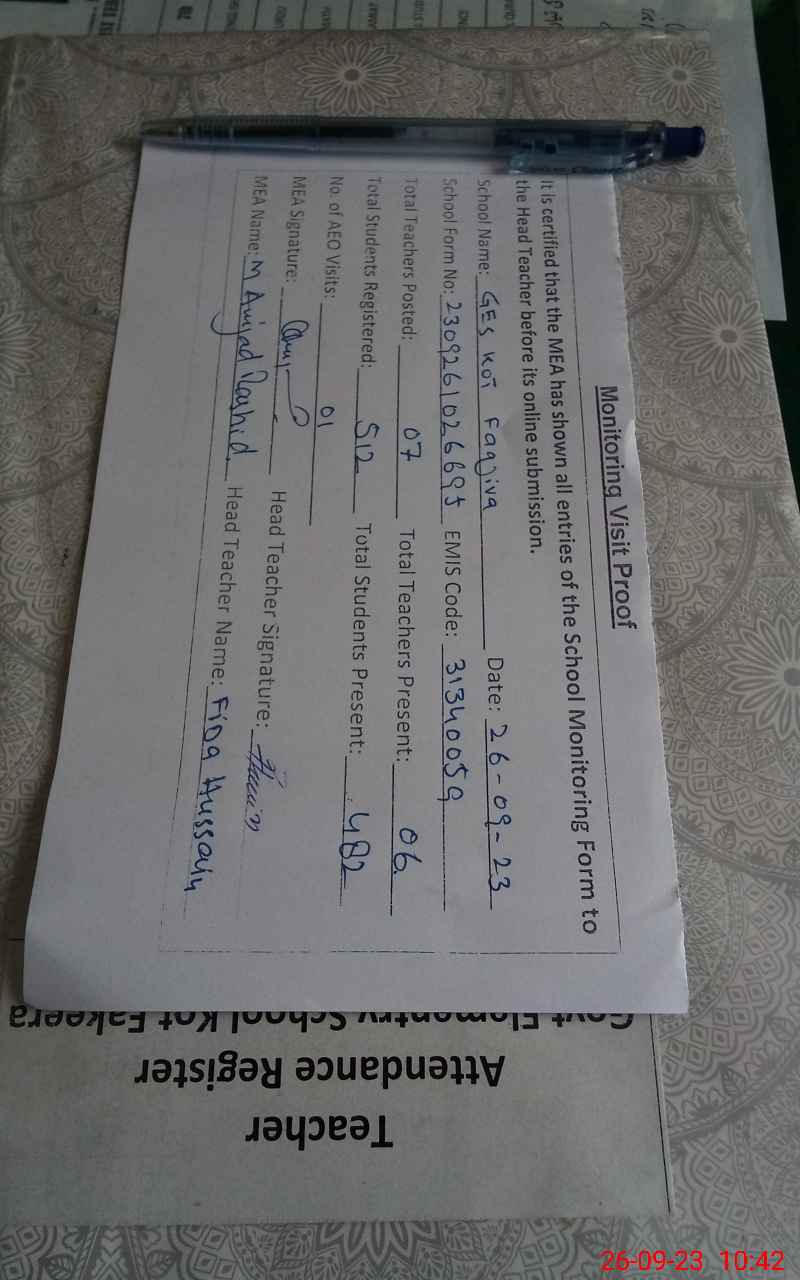 Monitoring Visit Proof
It is certified that the MEA has shown all entries of the School Monitoring Form to
the Head Teacher before its online submission.
School Name: GES Kot Faqjira Date: 26-09-23
School Form No: 2309261026695 EMIS Code: 31340059
Total Teachers Posted: 07 Total Teachers Present: 06
Total Students Registered: 512 Total Students Present: 482
No. of AEO Visits: 01
MEA Signature: Head Teacher Signature:
MEA Name: M Amjad Rashid Head Teacher Name: Fida Hussain
Teacher
Attendance Register
Govt Elementry School Kot Fakeera
26-09-23 10:42